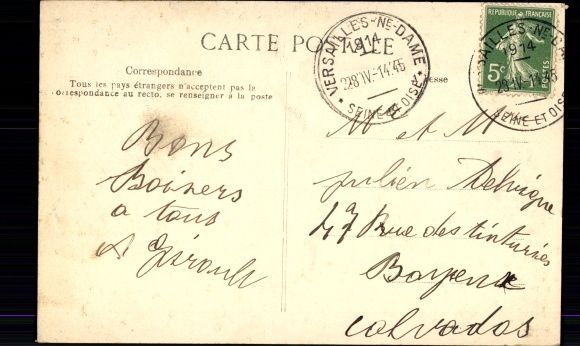 CARTE POSTALE
Correspondance
Tous les pays étrangers n'acceptent pas la
correspondance au recto, se renseigner à la poste
Bons
Baisers
a tous
Girault
VERSAILLES-NE-DAME
1914
28 IV-14:45
SEINE ET OISE
RÉPUBLIQUE FRANÇAISE
5c
POSTES
VERSAILLES-NE-DAME
1914
28 IV-14:45
SEINE ET OISE
M et M
julien Delvigne
47 Rue des tinturies
Bayeux
calvados